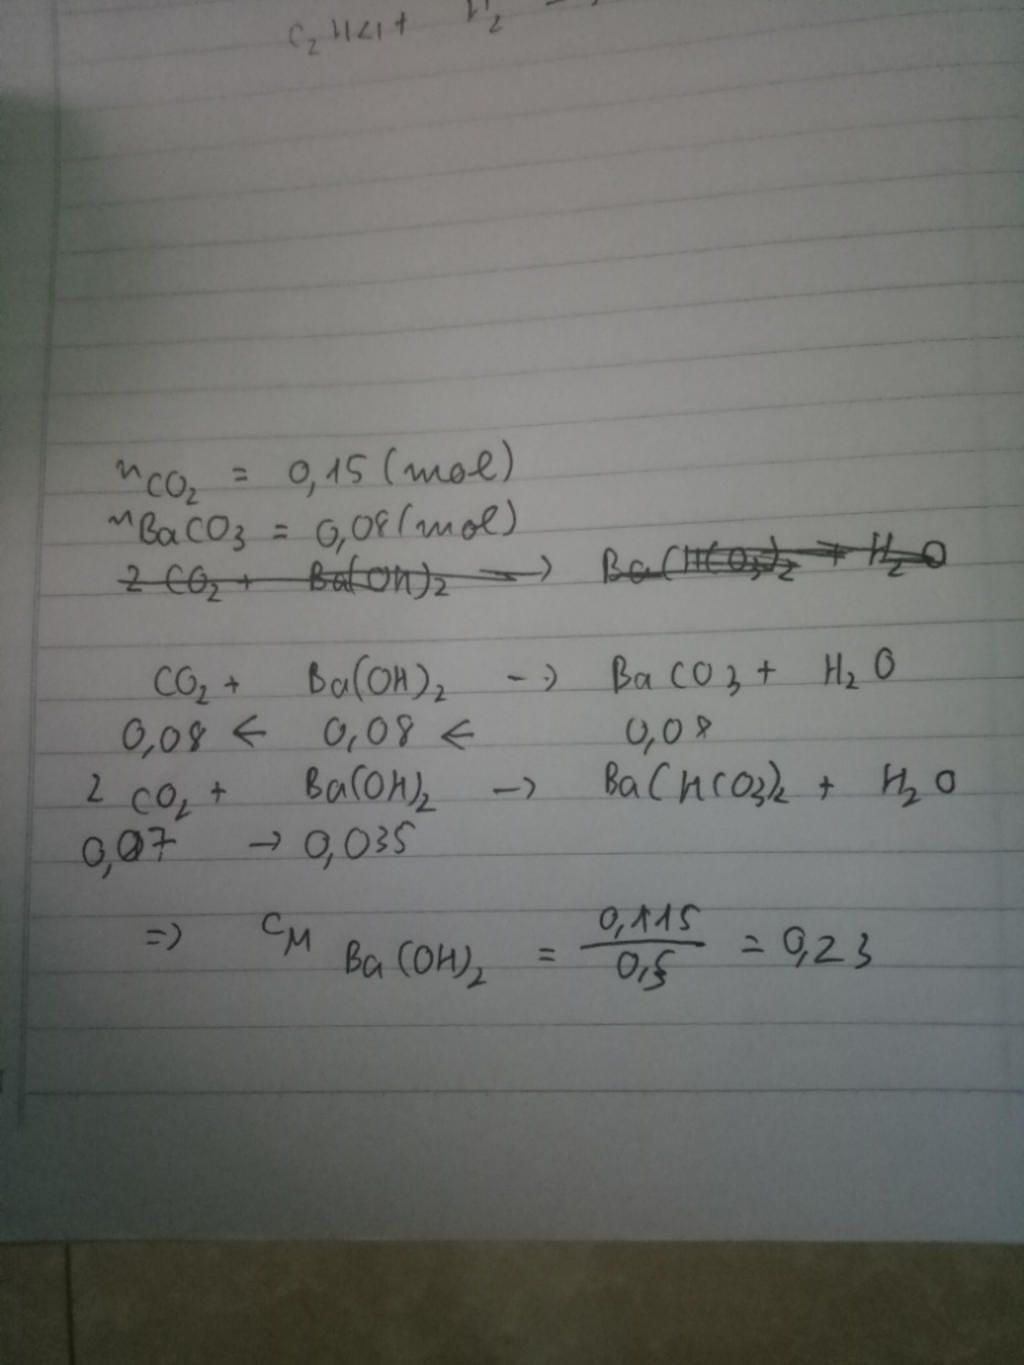 nCO₂ = 0,15 (mol)
nBaCO3 = 0,08 (mol)
2 CO₂ + Ba(OH)₂ → Ba(HCO3)₂ + H₂O
CO₂ + Ba(OH)₂ → BaCO3 + H₂O
0,08 ← 0,08 ← 0,08
2 CO₂ + Ba(OH)₂ → Ba(HCO3)₂ + H₂O
0,07 → 0,035
=> CM Ba(OH)₂ = 0,115 / 0,5 = 0,23